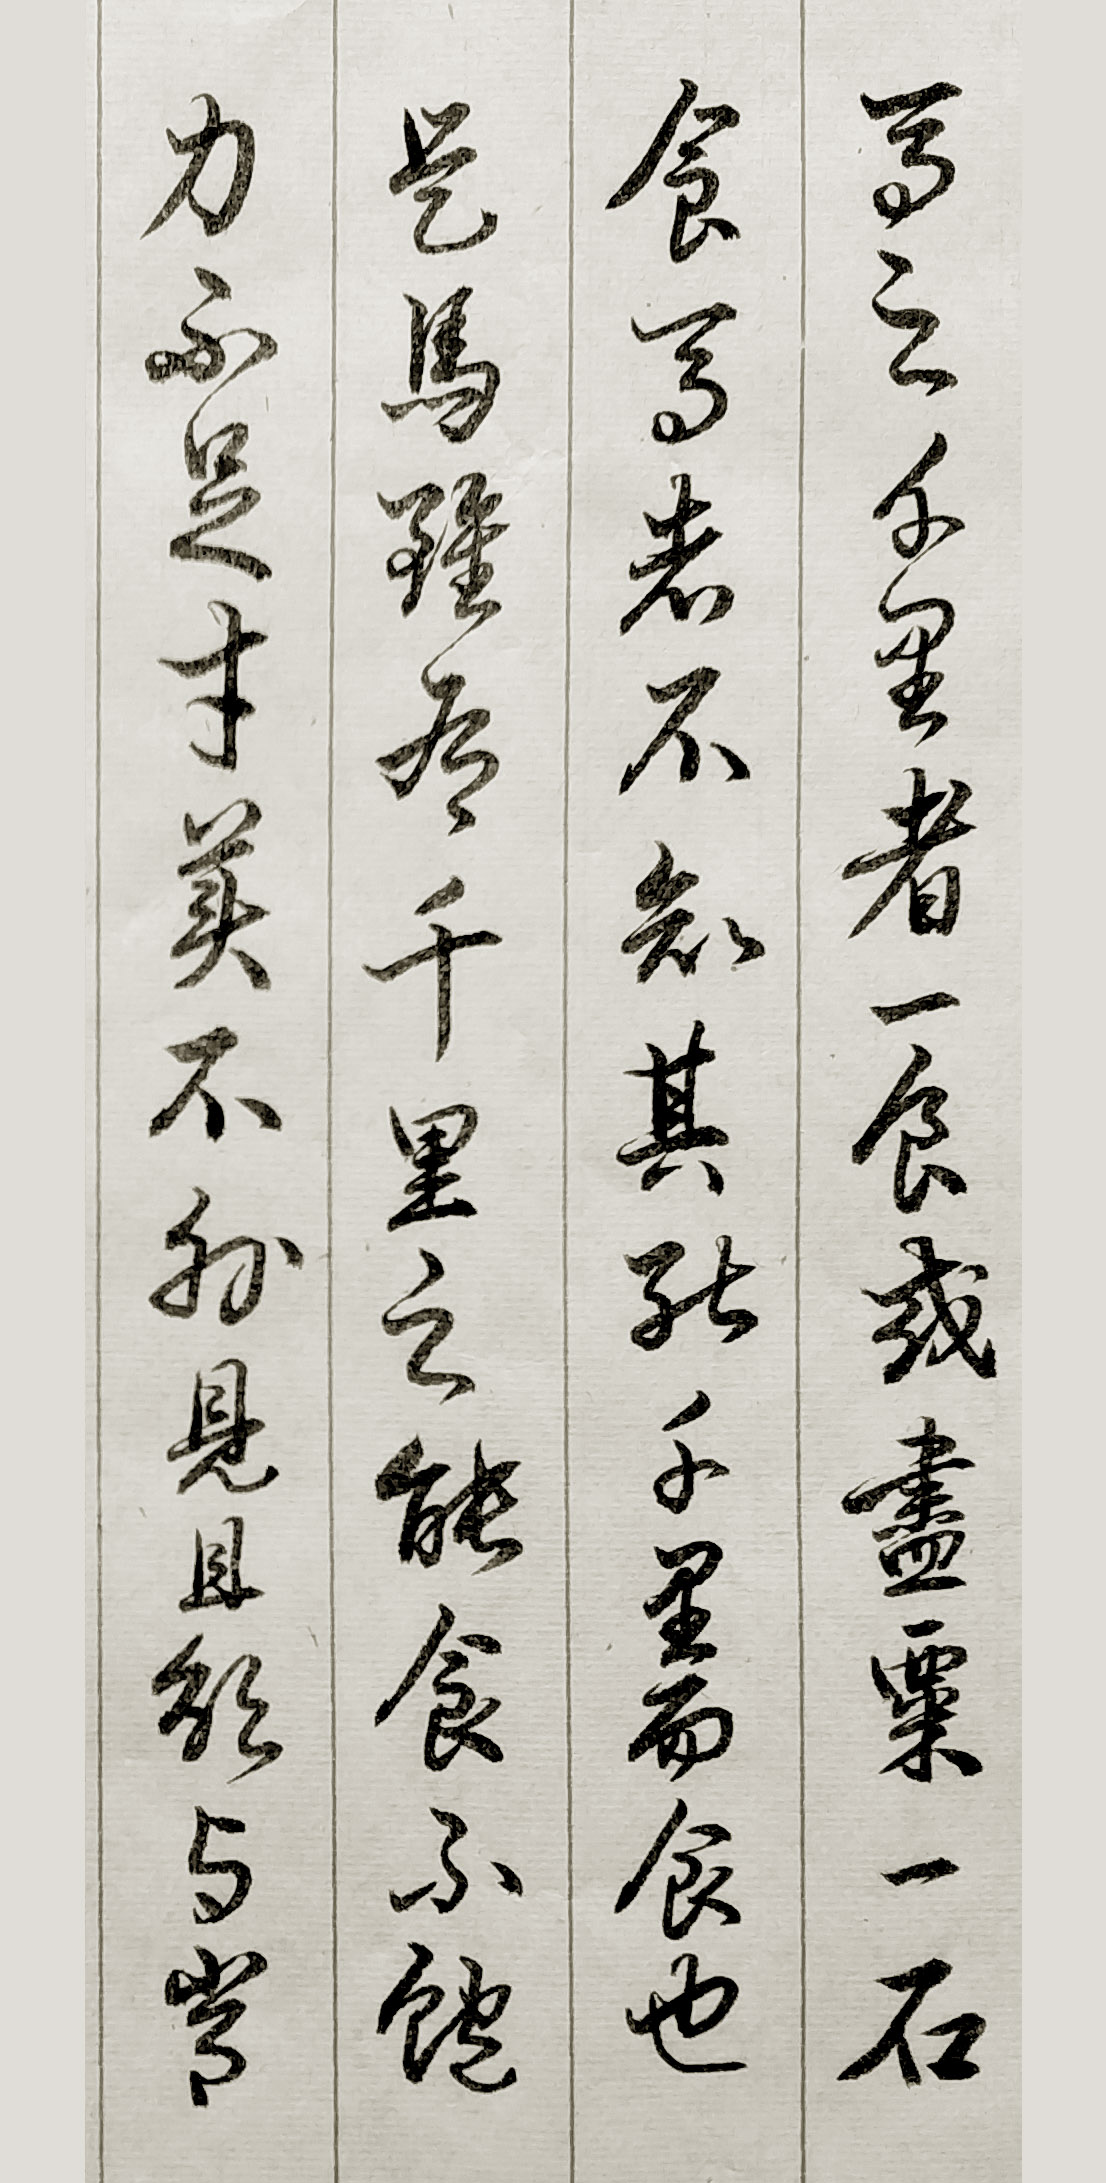 馬之千里者一食或盡粟一石
食馬者不知其能千里而食也
是馬雖有千里之能食不飽
力不足才美不外見且欲与常